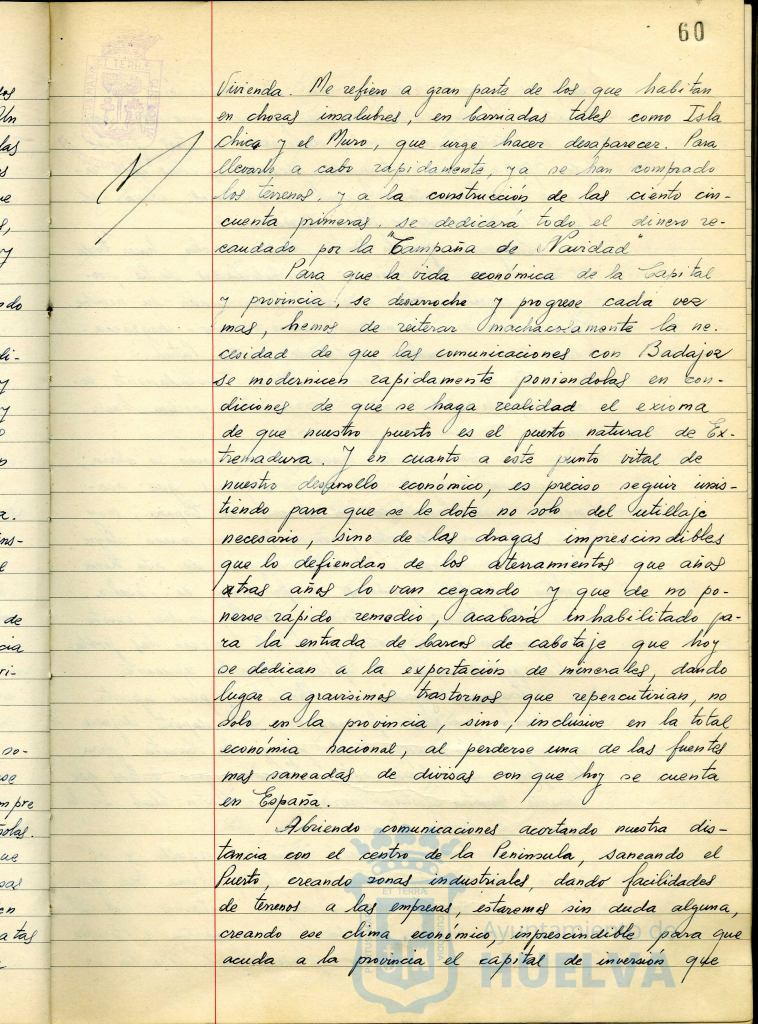 60
Vivienda. Me refiero a gran parte de los que habitan
en chozas insalubres, en barriadas tales como Isla
Chica y el Muro, que urge hacer desaparecer. Para
llevarlo a cabo rápidamente, ya se han comprado
los terrenos, y a la construcción de las ciento cin-
cuenta primeras, se dedicará todo el dinero re-
caudado por la "Campaña de Navidad"
Para que la vida económica de la Capital
y provincia, se desarroche y progrese cada vez
mas, hemos de reiterar machacosamente la ne-
cesidad de que las comunicaciones con Badajoz
se modernicen rapidamente poniendolas en con-
diciones de que se haga realidad el exioma
de que nuestro puerto es el puerto natural de Ex-
tremadura. Y en cuanto a este punto vital de
nuestro desarrollo económico, es preciso seguir insis-
tiendo para que se le dote no solo del utillaje
necesario, sino de las dragas imprescindibles
que lo defiendan de los aterramientos que años
atras años lo van cegando y que de no po-
nerse rápido remedio, acabará inhabilitado pa-
ra la entrada de barcos de cabotaje que hoy
se dedican a la exportación de minerales, dando
lugar a gravisimos trastornos que repercutirian, no
solo en la provincia, sino, inclusive en la total
económia nacional, al perderse una de las fuentes
mas saneadas de divisas con que hoy se cuenta
en España.
Abriendo comunicaciones acortando nuestra dis-
tancia con el centro de la Peninsula, saneando el
Puerto, creando zonas industriales, dando facilidades
de terrenos a las empresas, estaremos sin duda alguna,
creando ese clima económico, imprescindible para que
acuda a la provincia el capital de inversión que
Ayuntamiento de
HUELVA